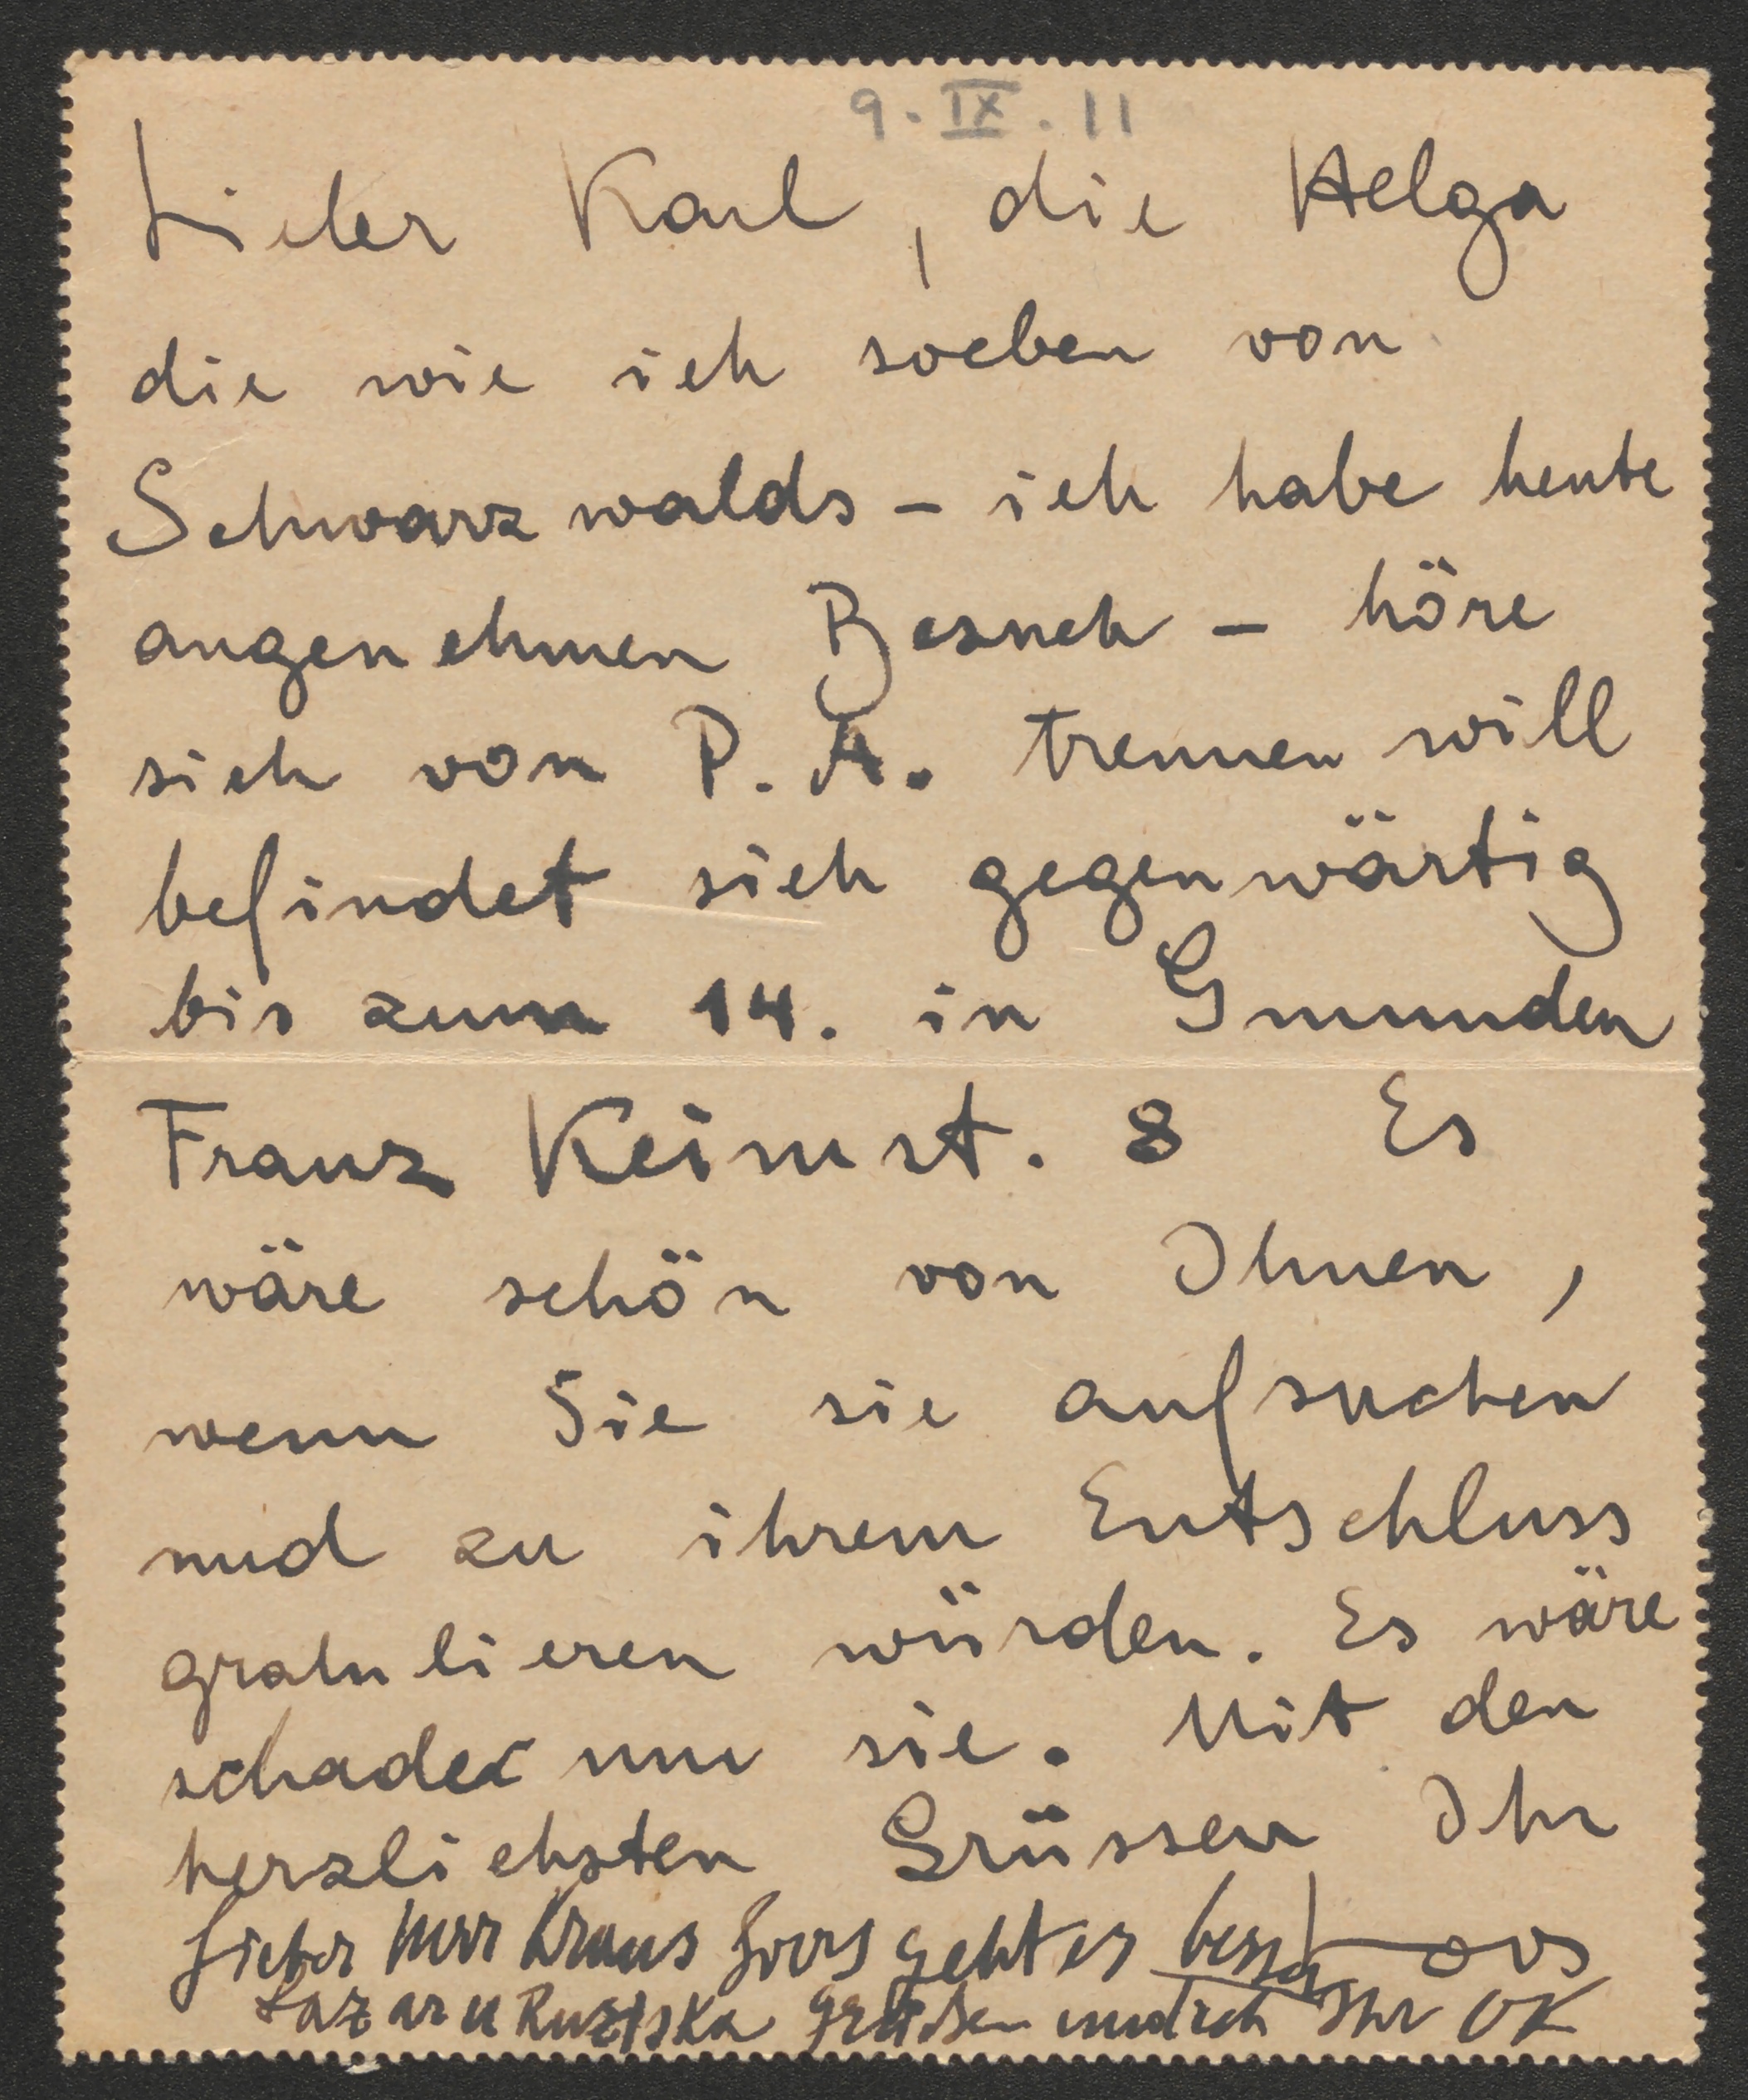 9. IX. 11
Lieber Karl, die Helga
die wie ich soeben von
Schwarzwalds – ich habe heute
angenehmen Besuch – höre
sich von P. A. trennen will
befindet sich gegenwärtig
bis zum 14. in Gmunden
Franz Keimst. 8 Es
wäre schön von Ihnen,
wenn Sie sie aufsuchen
und zu ihrem Entschluss
gratulieren würden. Es wäre
schade um sie. Mit den
herzlichsten Grüssen Ihr
Lieber Herr Kraus Loos geht es besser Loos
Lazar u Ruziska grüßen und ich Ihr OK